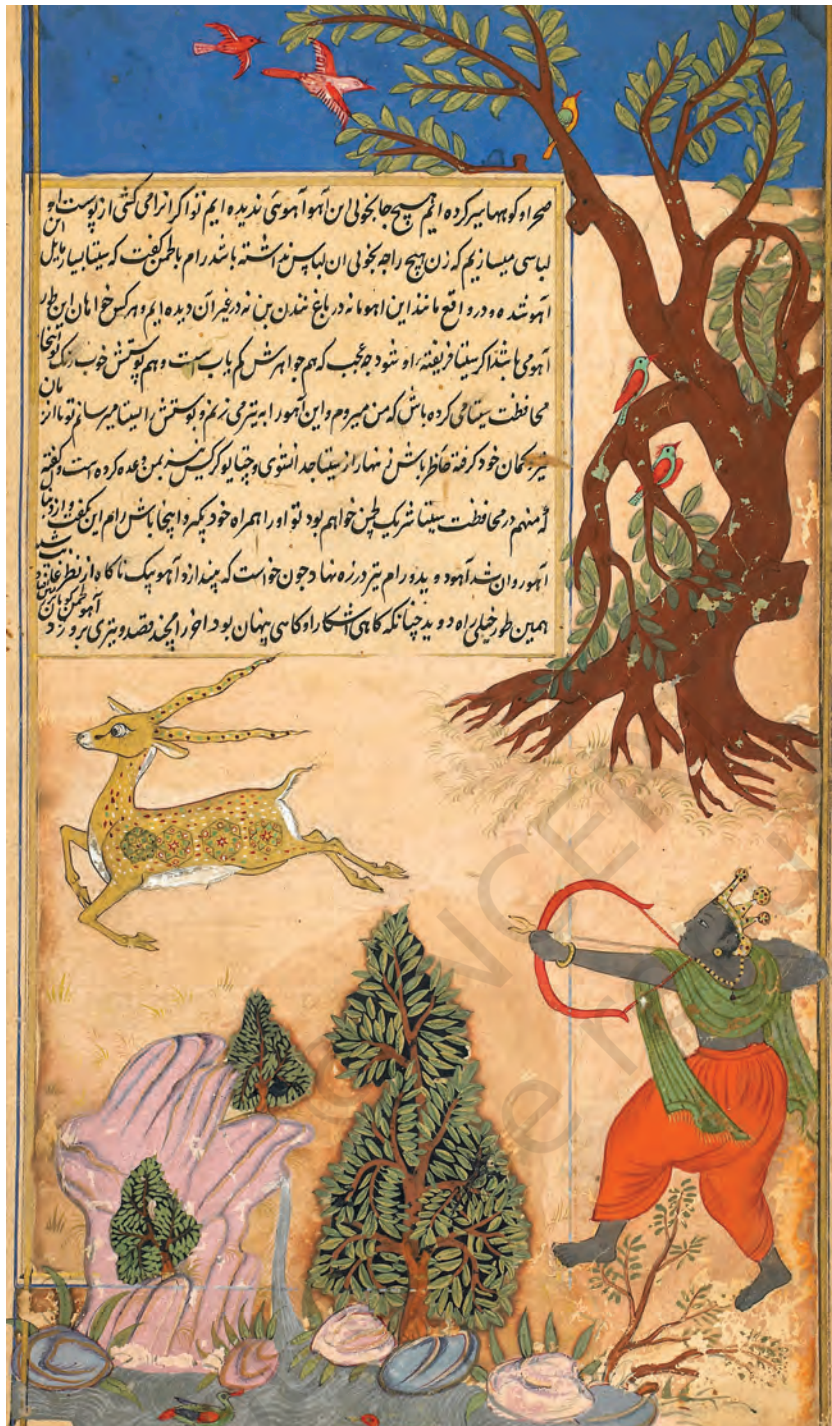 صحرا و کوهها سیر کرده ایم هیچ جا بخوبی این آهو آهوئی ندیده ایم تو اگر انرا می کشی از پوست این آهو
لباسی میسازیم که زن هیچ راجه بخوبی ان لباس نداشته باشد رام با لچمن گفت که سیتا بسیار مایل
آهو شده و در واقع مانند این اهو ما نه در باغ نندن بن نه در غیر آن دیده ایم و هر کس خواهان این طور
آهو می باشد اگر سیتا فریفته او شود چه عجب که هم جواهرش کم یاب است و هم پوستش خوب رنک تو اینجا
محافظت سیتا می کرده باش که من میروم و این آهو را به تیر می زنم و پوستش را بسیتا میرسانم تو
تیر و کمان خود کرفته حاظر باش زنهار از سیتا جدا نشوی و کرکس نیز بمن وعده کرده است و گفته
که منهم در محافظت سیتا شریک لچمن خواهم بود تو او را همراه خود بگیر و اینجا باش رام این بگفت و از دنبال
آهو روان شد آهو دوید و رام تیر در زه نهاد چون خواست که بیندازد آهو یک ناکاه از نظر
همین طور خیلی راه دوید چنانکه کاهی اشکارا و کاهی پنهان بود اخر رامچند قصد و تیری برو زد
NCER
e r